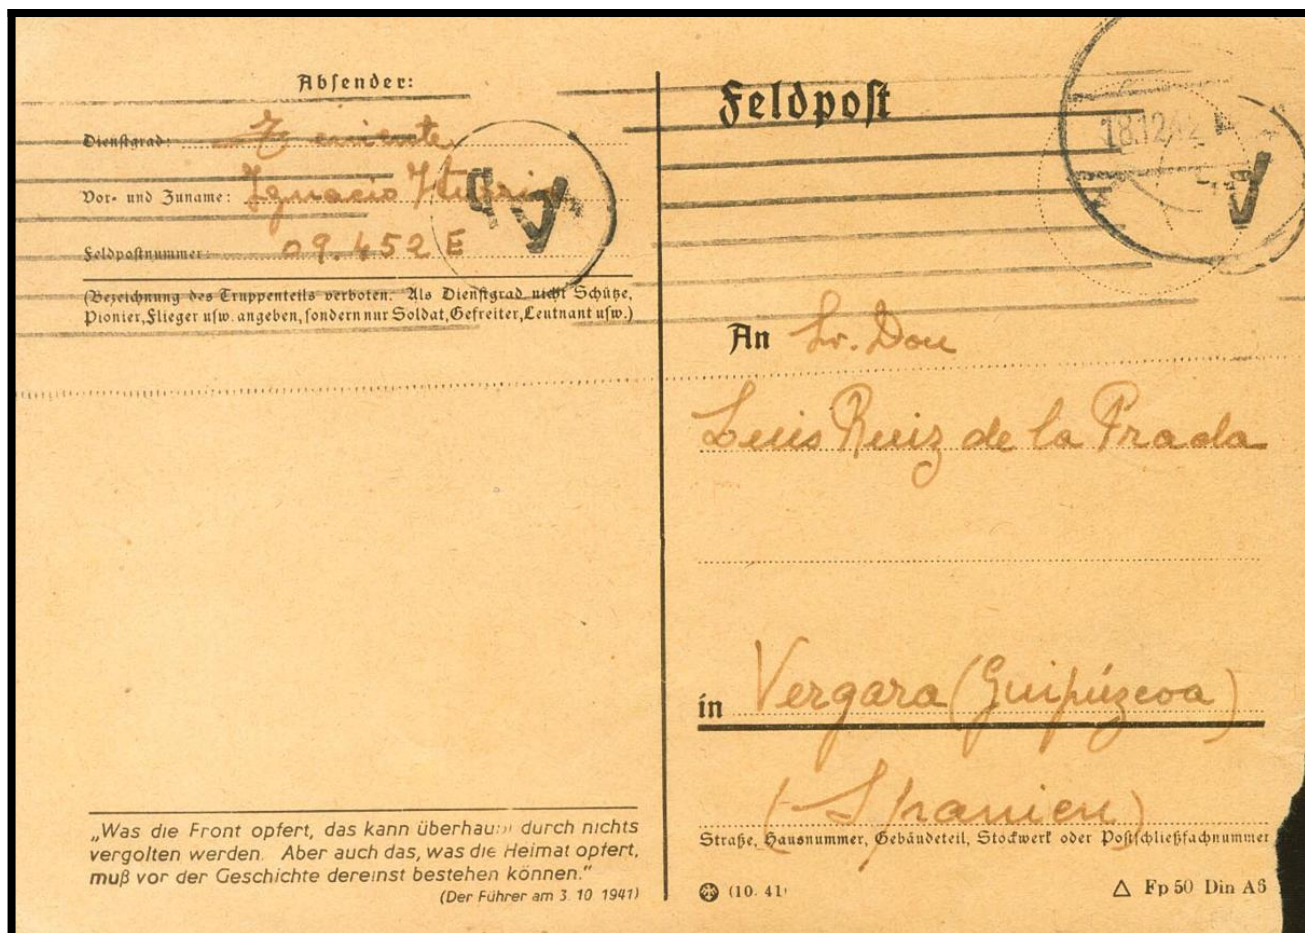 Absender:
Dienstgrad: Teniente
Vor- und Zuname: Ignacio
Feldpostnummer: 09.452 E
(Bezeichnung des Truppenteils verboten. Als Dienstgrad nicht Schütze,
Pionier, Flieger usw. angeben, sondern nur Soldat, Gefreiter, Leutnant usw.)
„Was die Front opfert, das kann durch nichts
vergolten werden. Aber auch das, was die Heimat opfert,
muß vor der Geschichte dereinst bestehen können.“
(Der Führer am 3. 10. 1941)
Feldpost
18.12.42
An Sr. Don
Luis Ruiz de la Prada
in Vergara (Guipúzcoa)
(Spanien)
Straße, Hausnummer, Gebäudeteil, Stockwerk oder Postschließfachnummer
(10. 41)
Fp 50 Din A6